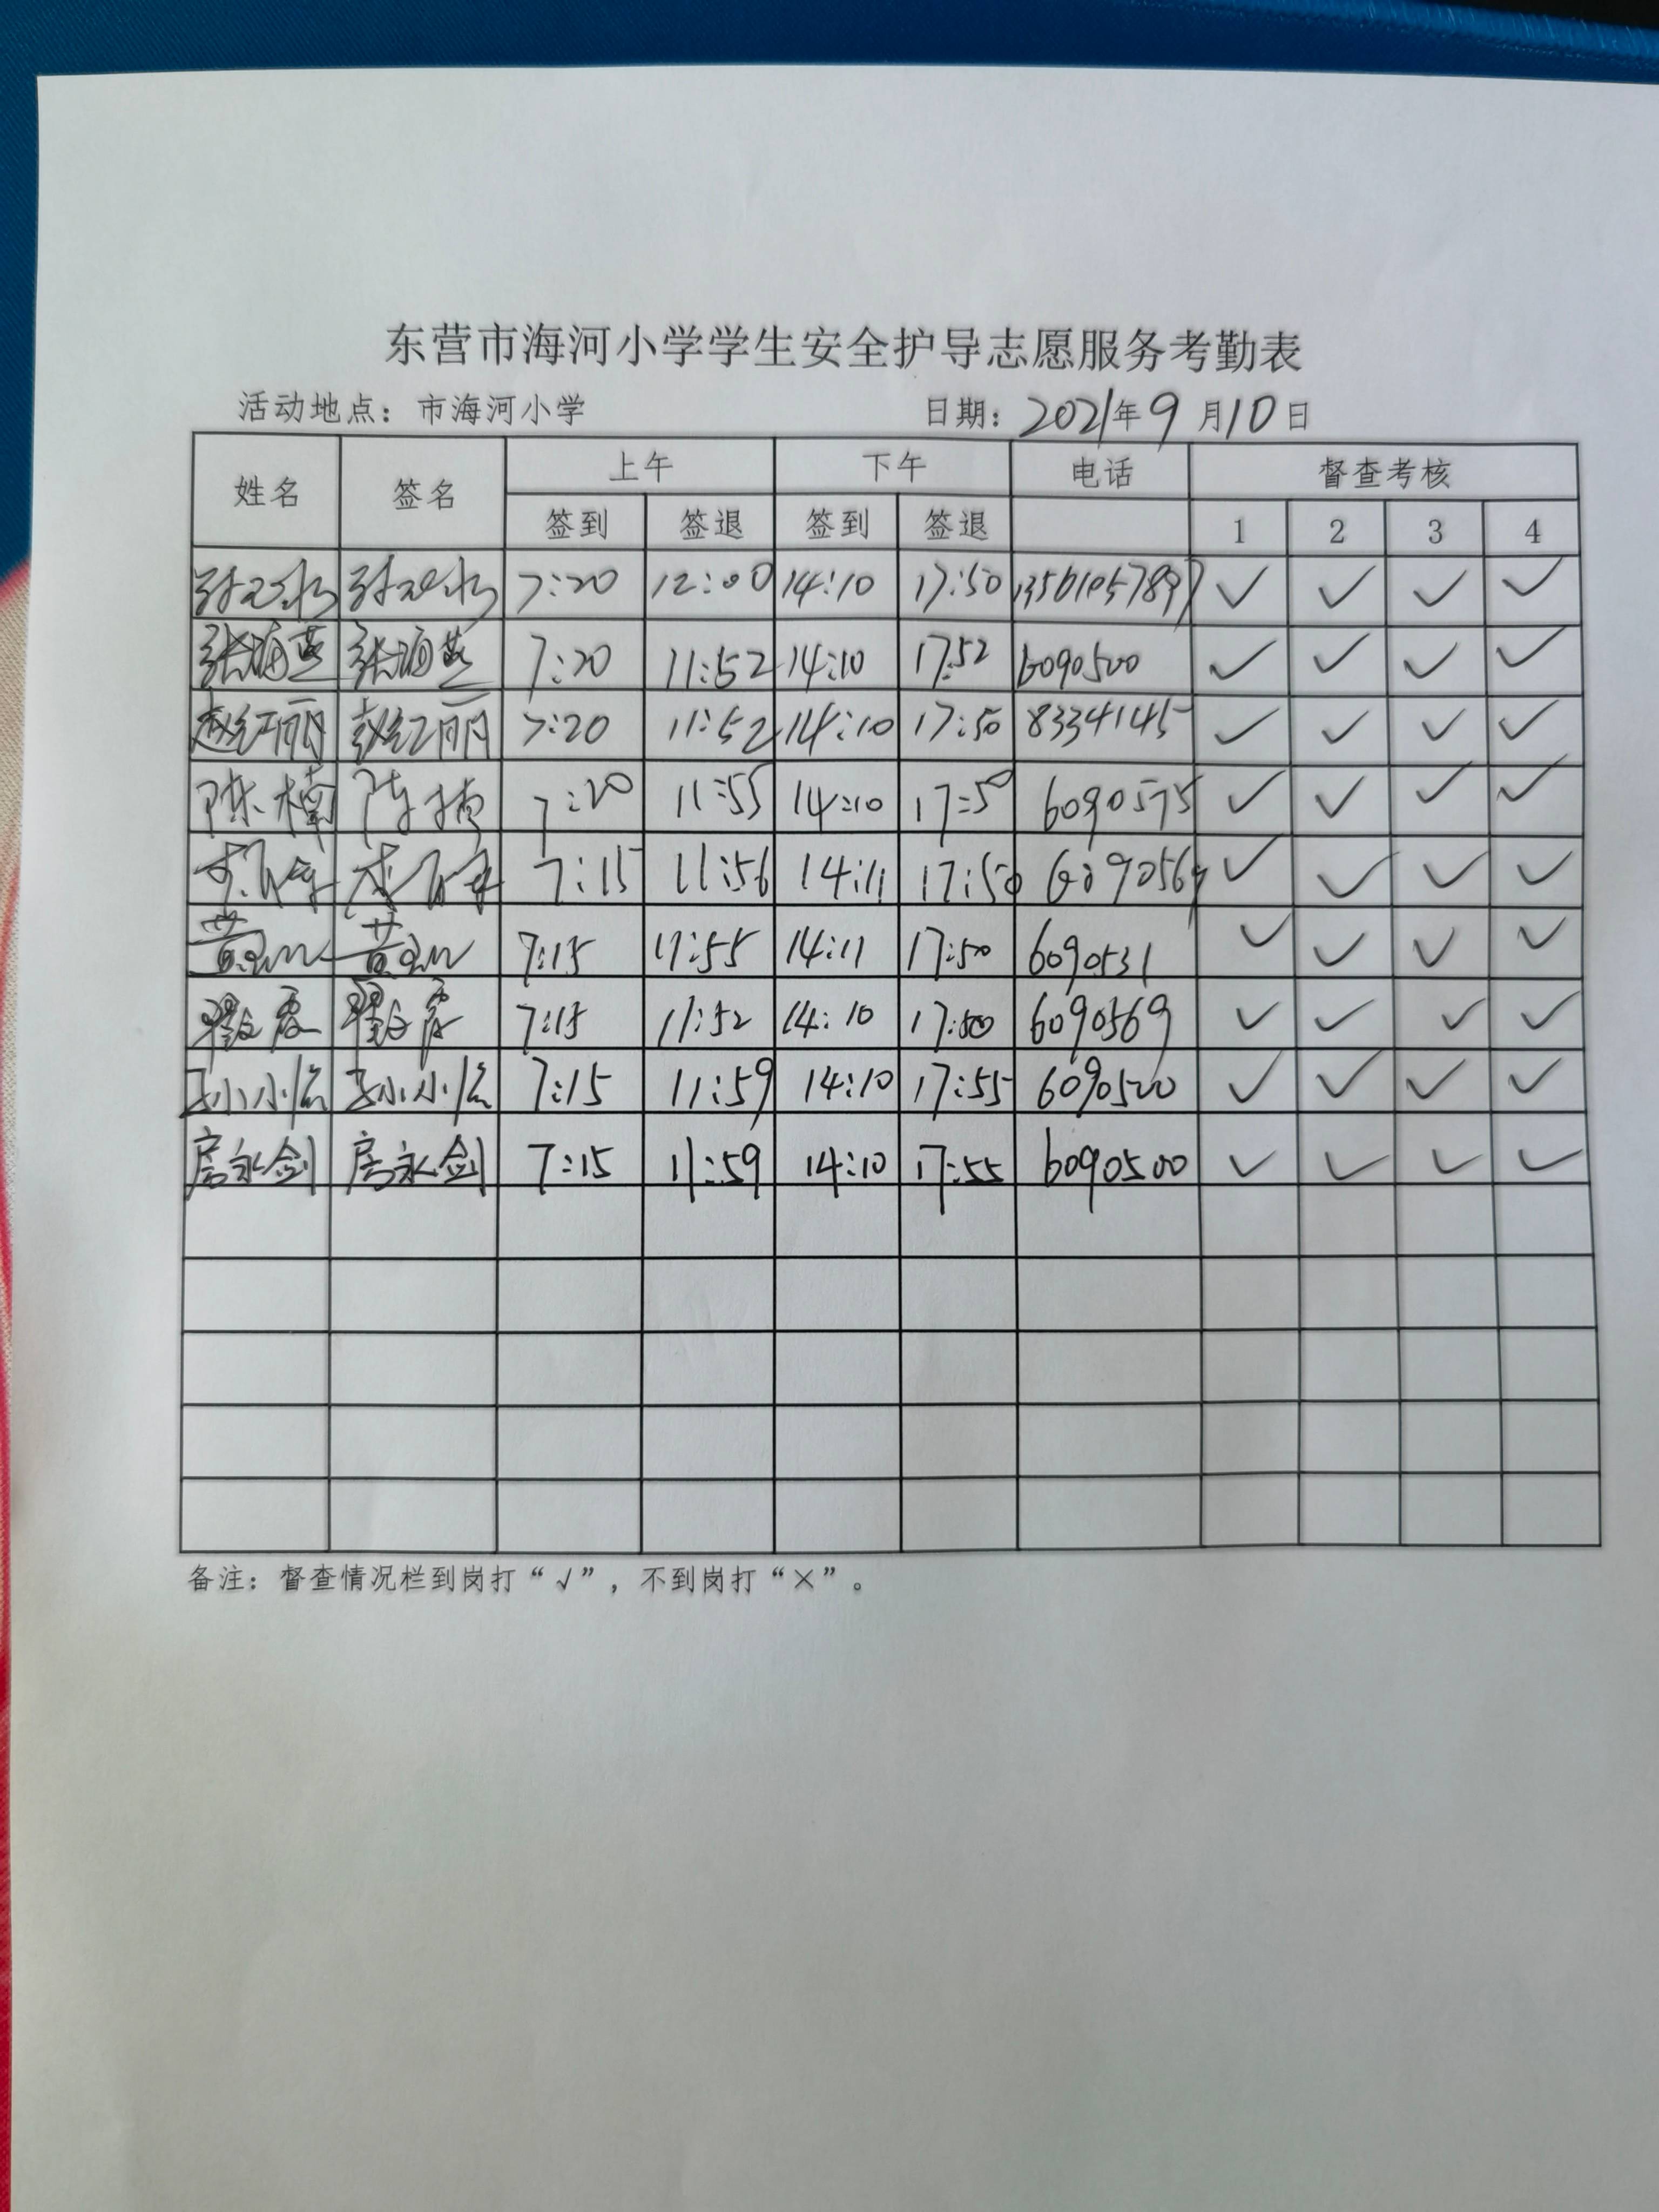 东营市海河小学学生安全护导志愿服务考勤表
活动地点：市海河小学 日期：2021年9月10日
姓名 签名 上午 下午 电话 督查考核
签到 签退 签到 签退 1 2 3 4
7:20 12:00 14:10 17:50 13561057897 ✓ ✓ ✓ ✓
张海燕 张海燕 7:20 11:52 14:10 17:52 6090500 ✓ ✓ ✓ ✓
赵红丽 赵红丽 7:20 11:52 14:10 17:50 8334145 ✓ ✓ ✓ ✓
陈楠 陈楠 7:20 11:55 14:10 17:50 6090575 ✓ ✓ ✓ ✓
7:15 11:56 14:11 17:50 6090569 ✓ ✓ ✓ ✓
黄 黄 7:15 11:55 14:11 17:50 6090531 ✓ ✓ ✓ ✓
翟 霞 翟 霞 7:15 11:52 14:10 17:50 6090569 ✓ ✓ ✓ ✓
孙小 孙小 7:15 11:59 14:10 17:55 6090500 ✓ ✓ ✓ ✓
房永剑 房永剑 7:15 11:59 14:10 17:55 6090500 ✓ ✓ ✓ ✓
备注：督查情况栏到岗打“√”，不到岗打“×”。